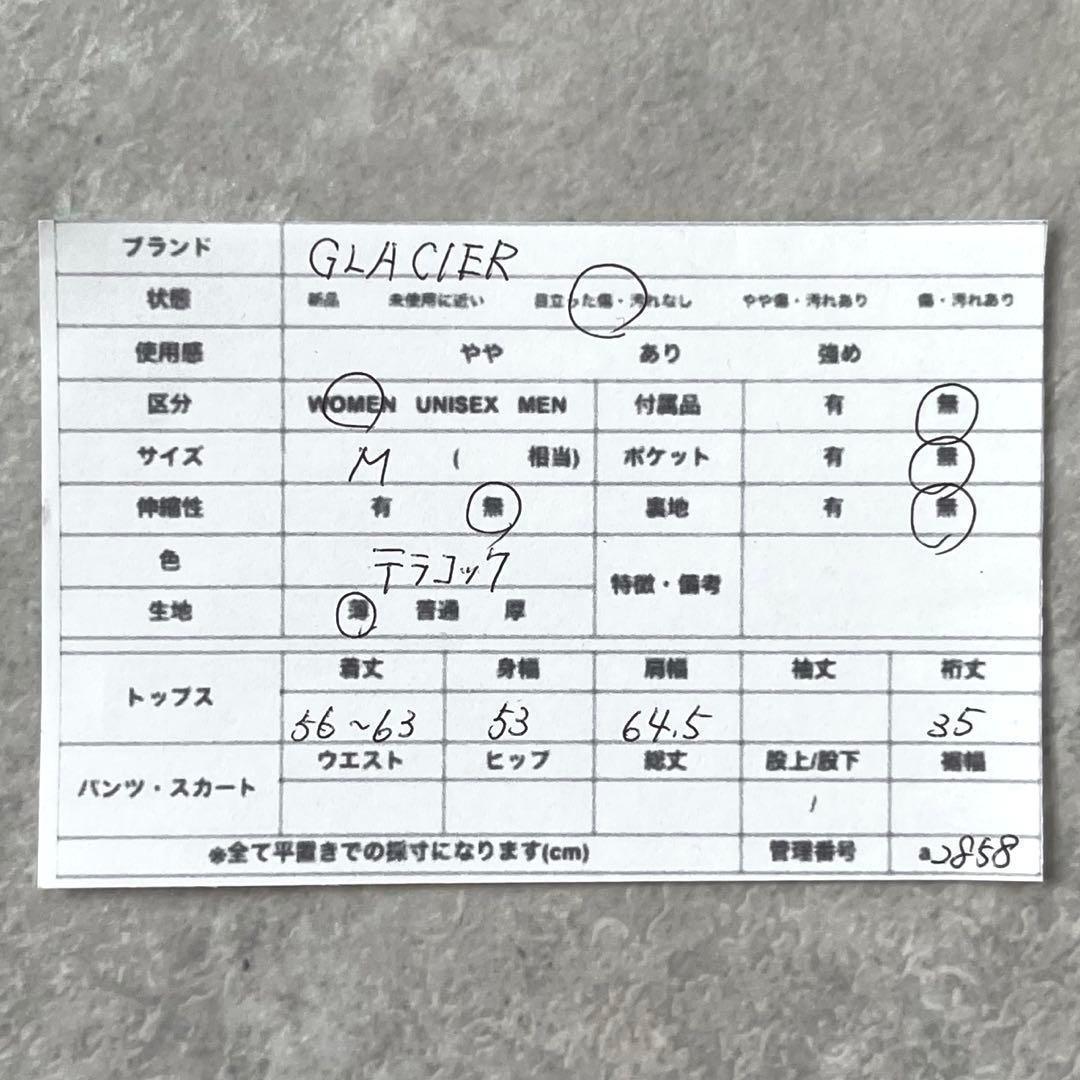 ブランド GLACIER
状態 新品 未使用に近い 目立った傷・汚れなし やや傷・汚れあり 傷・汚れあり
使用感 やや あり 強め
区分 WOMEN UNISEX MEN 付属品 有 無
サイズ M ( 相当) ポケット 有 無
伸縮性 有 無 裏地 有 無
色 テラコッタ 特徴・備考
生地 薄 普通 厚
トップス 着丈 身幅 肩幅 袖丈 裄丈
56~63 53 64.5 35
パンツ・スカート ウエスト ヒップ 総丈 股上/股下 裾幅
/
※全て平置きでの採寸になります(cm) 管理番号 a2858